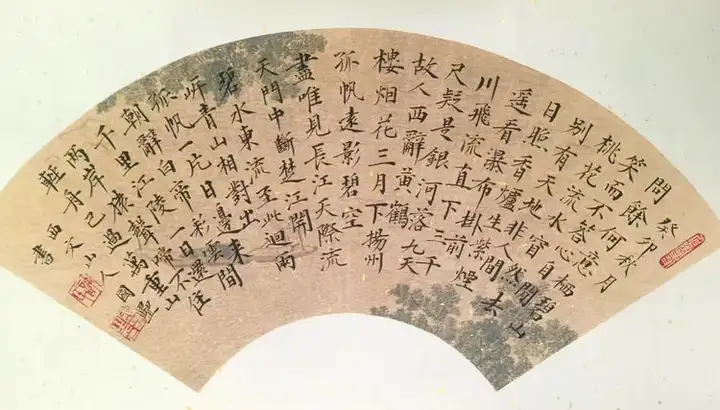 癸卯秋月
問餘何意栖碧山
笑而不答心自閒
桃花流水窅然去
別有天地非人間
日照香爐生紫煙
遙看瀑布掛前
川飛流直下三千
尺疑是銀河落九天
故人西辭黃鶴
樓烟花三月下揚州
孤帆遠影碧空
盡唯見長江天際流
天門中斷楚江開
碧水東流至此迴兩
岸青山相對出
孤帆一片日邊來
朝辭白帝彩雲間
千里江陵一日還
兩岸猿聲啼不住
輕舟已過萬重山
西文山人國璽
書